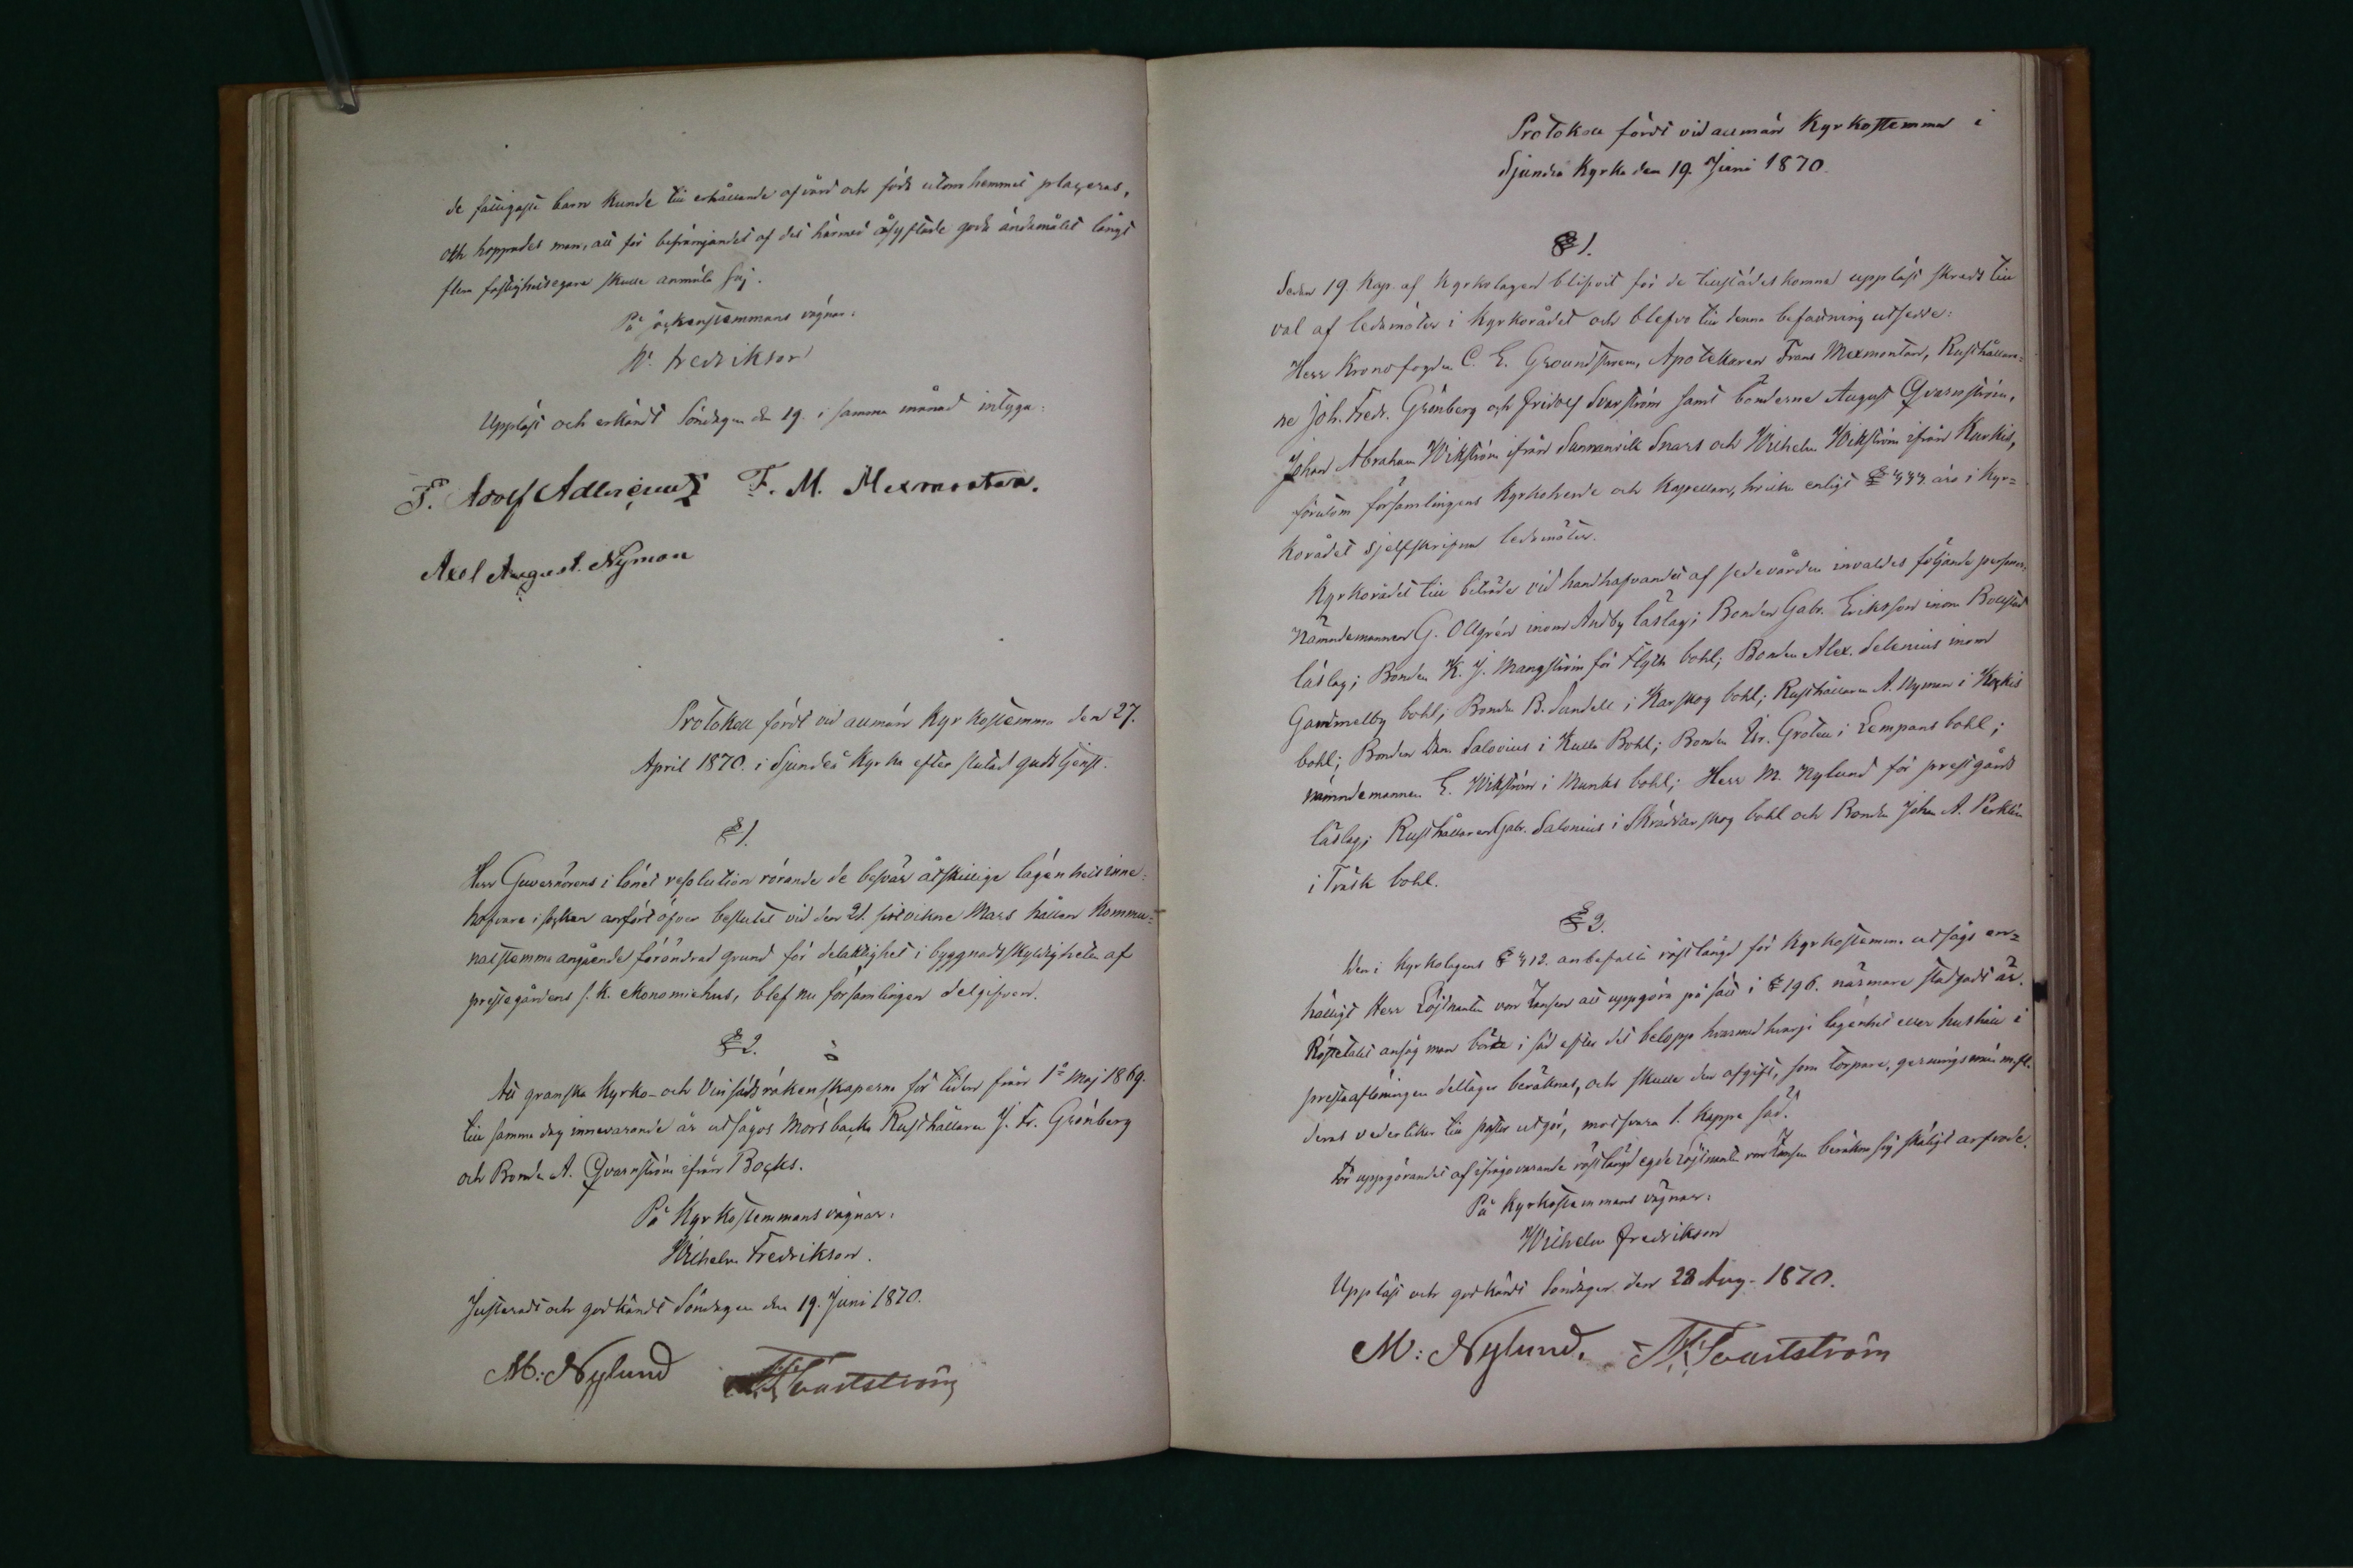 de fattigaste barn kunde till erhållande af vård och föda utom hemmet placeras,
och hoppades man, att för befrämjandet af det härmed åsyftade goda ändamålet långt
flera fastighetsegare skulle anmäla sig.
På sockenstemmans vägnar:
W. Fredrikson
Uppläst och erkändt Söndagen den 19. i samma månad intyga:
F. Adolf Adlercreutz F. M. Mexmontan.
Axel August Nyman
Protokoll fördt vid allmän Kyrkostemma den 27.
April 1870. i Sjundeå Kyrka efter slutad gudstjenst.
§ 1.
Herr Guvernörens i länet resolution rörande de besvär åtskillige lägenhetsinne-
hafvare i socknen anfört öfver beslutet vid den 21. sistvikne Mars hållen Kommu-
nalstemma angående förändrad grund för delaktighet i byggnadsskyldigheten af
prestegårdens s. k. ekonomiehus, blef nu församlingen delgifven.
§ 2.
Att granska Kyrko- och Vinsädsräkenskaperna för tiden från 1a Maj 1869.
till samma dag innevarande år utsågos Mörsbacka Rusthållaren J. Fr. Grönberg
och Bonden A. Qvarnström ifrån Bocks.
På Kyrkostemmans vägnar:
Wilhelm Fredrikson.
Justeradt och godkändt Söndagen den 19. Juni 1870.
M: Nylund Svartström
Protokoll fördt vid allmän Kyrkostemma i
Sjundeå Kyrka den 19. Juni 1870.
§ 1.
Sedan 19 Kap. af Kyrkolagen blifvit för de tillstädeskomna uppläst skreds till
val af ledamöter i Kyrkorådet och blefvo till denna befattning utsedde:
Herr Kronofogden C. E. Groundstroem, Apotekaren Frans Mexmontan, Rusthållare-
ne Joh. Fredr. Grönberg och Fridolf Svartström samt bönderne August Qvarnström,
Johan Abraham Wikström ifrån Sunnanvik Snars och Wilhelm Wikström ifrån Kurkis,
förutom församlingens Kyrkoherde och Kapellan, hvilka enligt § 444 äro i Kyr-
korådet sjelfskrifna ledamöter.
Kyrkorådet till biträde vid handhafvandet af sedevården invaldes följande personer:
Nämndemannen G. Ollgren inom Andby låslag; Bonden Gabr. Eriksson inom Bollstad
låslag; Bonden K. J. Mangström för Flyth bohl; Bonden Alex. Selenius inom
Gammelby bohl; Bonden B. Sundell i Karskog bohl; Rusthållaren A. Nyman i Kockis
bohl; Bonden Dan. Salovius i Kulla Bohl; Bonden Gr. Groten i Lempans bohl;
nämndemannen E. Wikström i Munks bohl; Herr M. Nylund för prestgårds
låslag; Rusthållaren Gabr. Salonius i Skräddarskog bohl och Bonden Johan A. Perklén
i Träsk bohl.
§ 2.
Den i Kyrkolagens § 412. anbefalte röstlängd för Kyrkostemma utsågs en-
hälligt Herr Löjtnanten von Zansen att uppgöra på sätt i § 196. närmare stadgadt är.
Röstetalet ansåg man böra i säd efter det belopp hvarmed hvarje lägenhet eller hushåll i
prestaflöningen deltager beräknas, och skulle den afgift, som torpare, gerningsmän m. fl.
deras vederlikar till pastor utgör, motsvara 1. Kappe säd.
För uppgörandet af ifrågavarande röstlängd egde Löjtnanten von Zansen beräkna sig skäligt arfvode.
På Kyrkostemmans vägnar:
Wilhelm Fredrikson
Uppläst och godkändt Söndagen den 28 Aug. 1870.
M: Nylund. Svartström